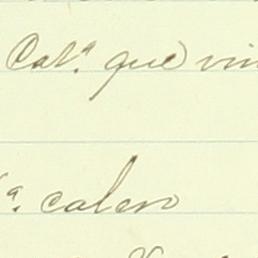 Catª. que
ª. calero